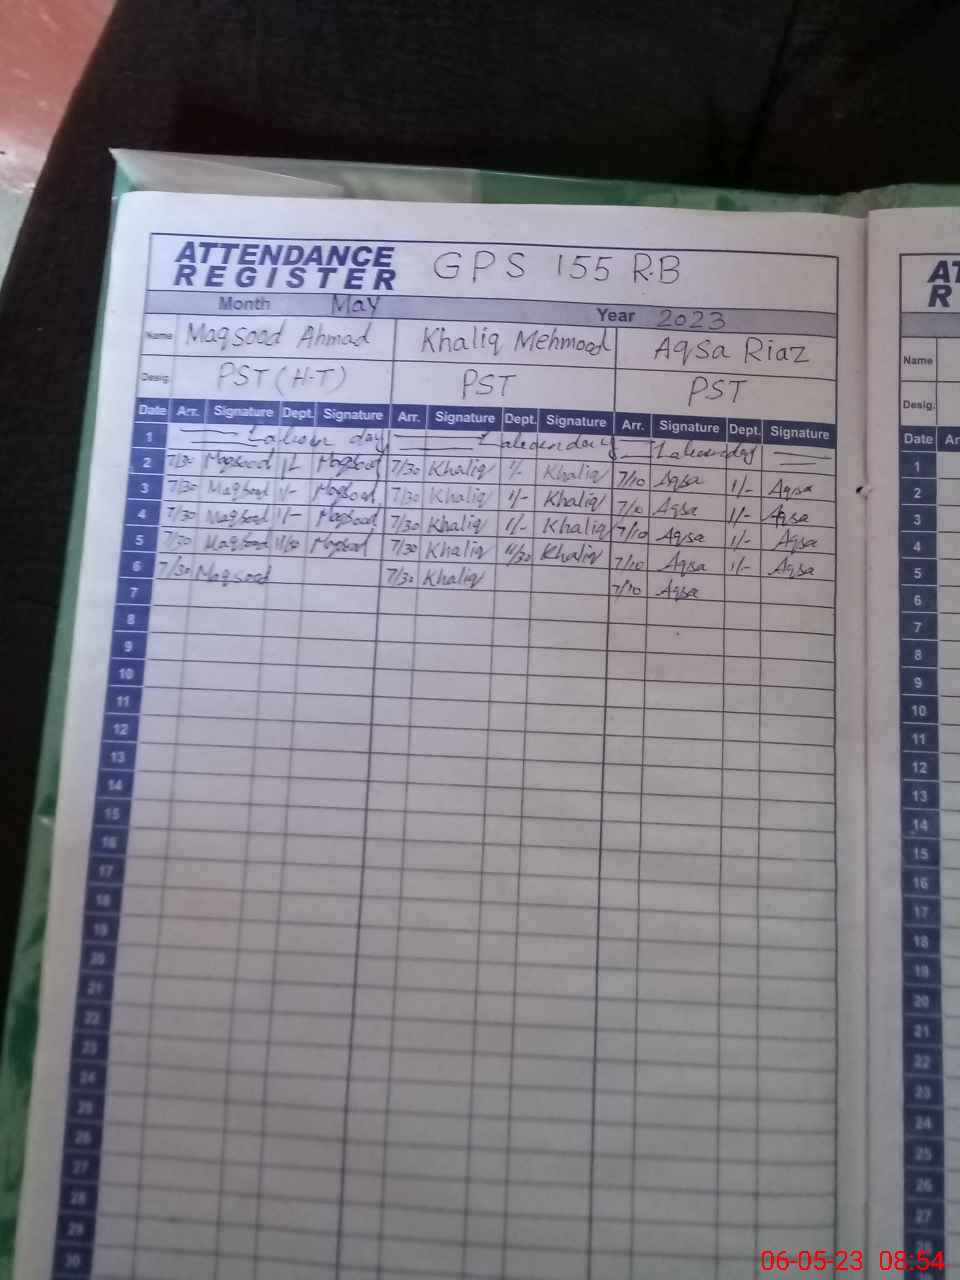 ATTENDANCE REGISTER GPS 155 R.B
Month May Year 2023
Name Maqsood Ahmad Khaliq Mehmood Aqsa Riaz
Desig. PST (H-T) PST PST
Date Arr. Signature Dept. Signature Arr. Signature Dept. Signature Arr. Signature Dept. Signature
1 day day day
2 7/30 Maqsood Maqsood 7/30 Khaliq 1/- Khaliq 7/10 Aqsa 1/- Aqsa
3 7/30 Maqsood 1/- Maqsood 7/30 Khaliq 1/- Khaliq 7/10 Aqsa 1/- Aqsa
4 7/30 Maqsood 1/- Maqsood 7/30 Khaliq 1/- Khaliq 7/10 Aqsa 1/- Aqsa
5 7/30 Maqsood Maqsood 7/30 Khaliq 11/30 Khaliq 7/10 Aqsa 1/- Aqsa
6 7/30 Maqsood 7/30 Khaliq 7/10 Aqsa
7
8
9
10
11
12
13
14
15
16
17
18
19
20
21
22
23
24
25
26
27
28
29
30
AT
R
Name
Desig.
Date
1
2
3
4
5
6
7
8
9
10
11
12
13
14
15
16
17
18
19
20
21
22
23
24
25
26
27
28
06-05-23 08:54